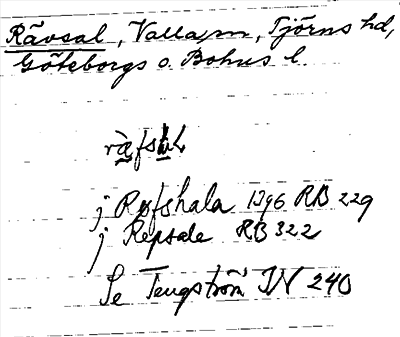 Rävsal, Valla sn, Tjörns hd,
Göteborgs o. Bohus l.
j Ræfshala 1396 RB 229
j Repsale RB 322
Se Tengström IN 240